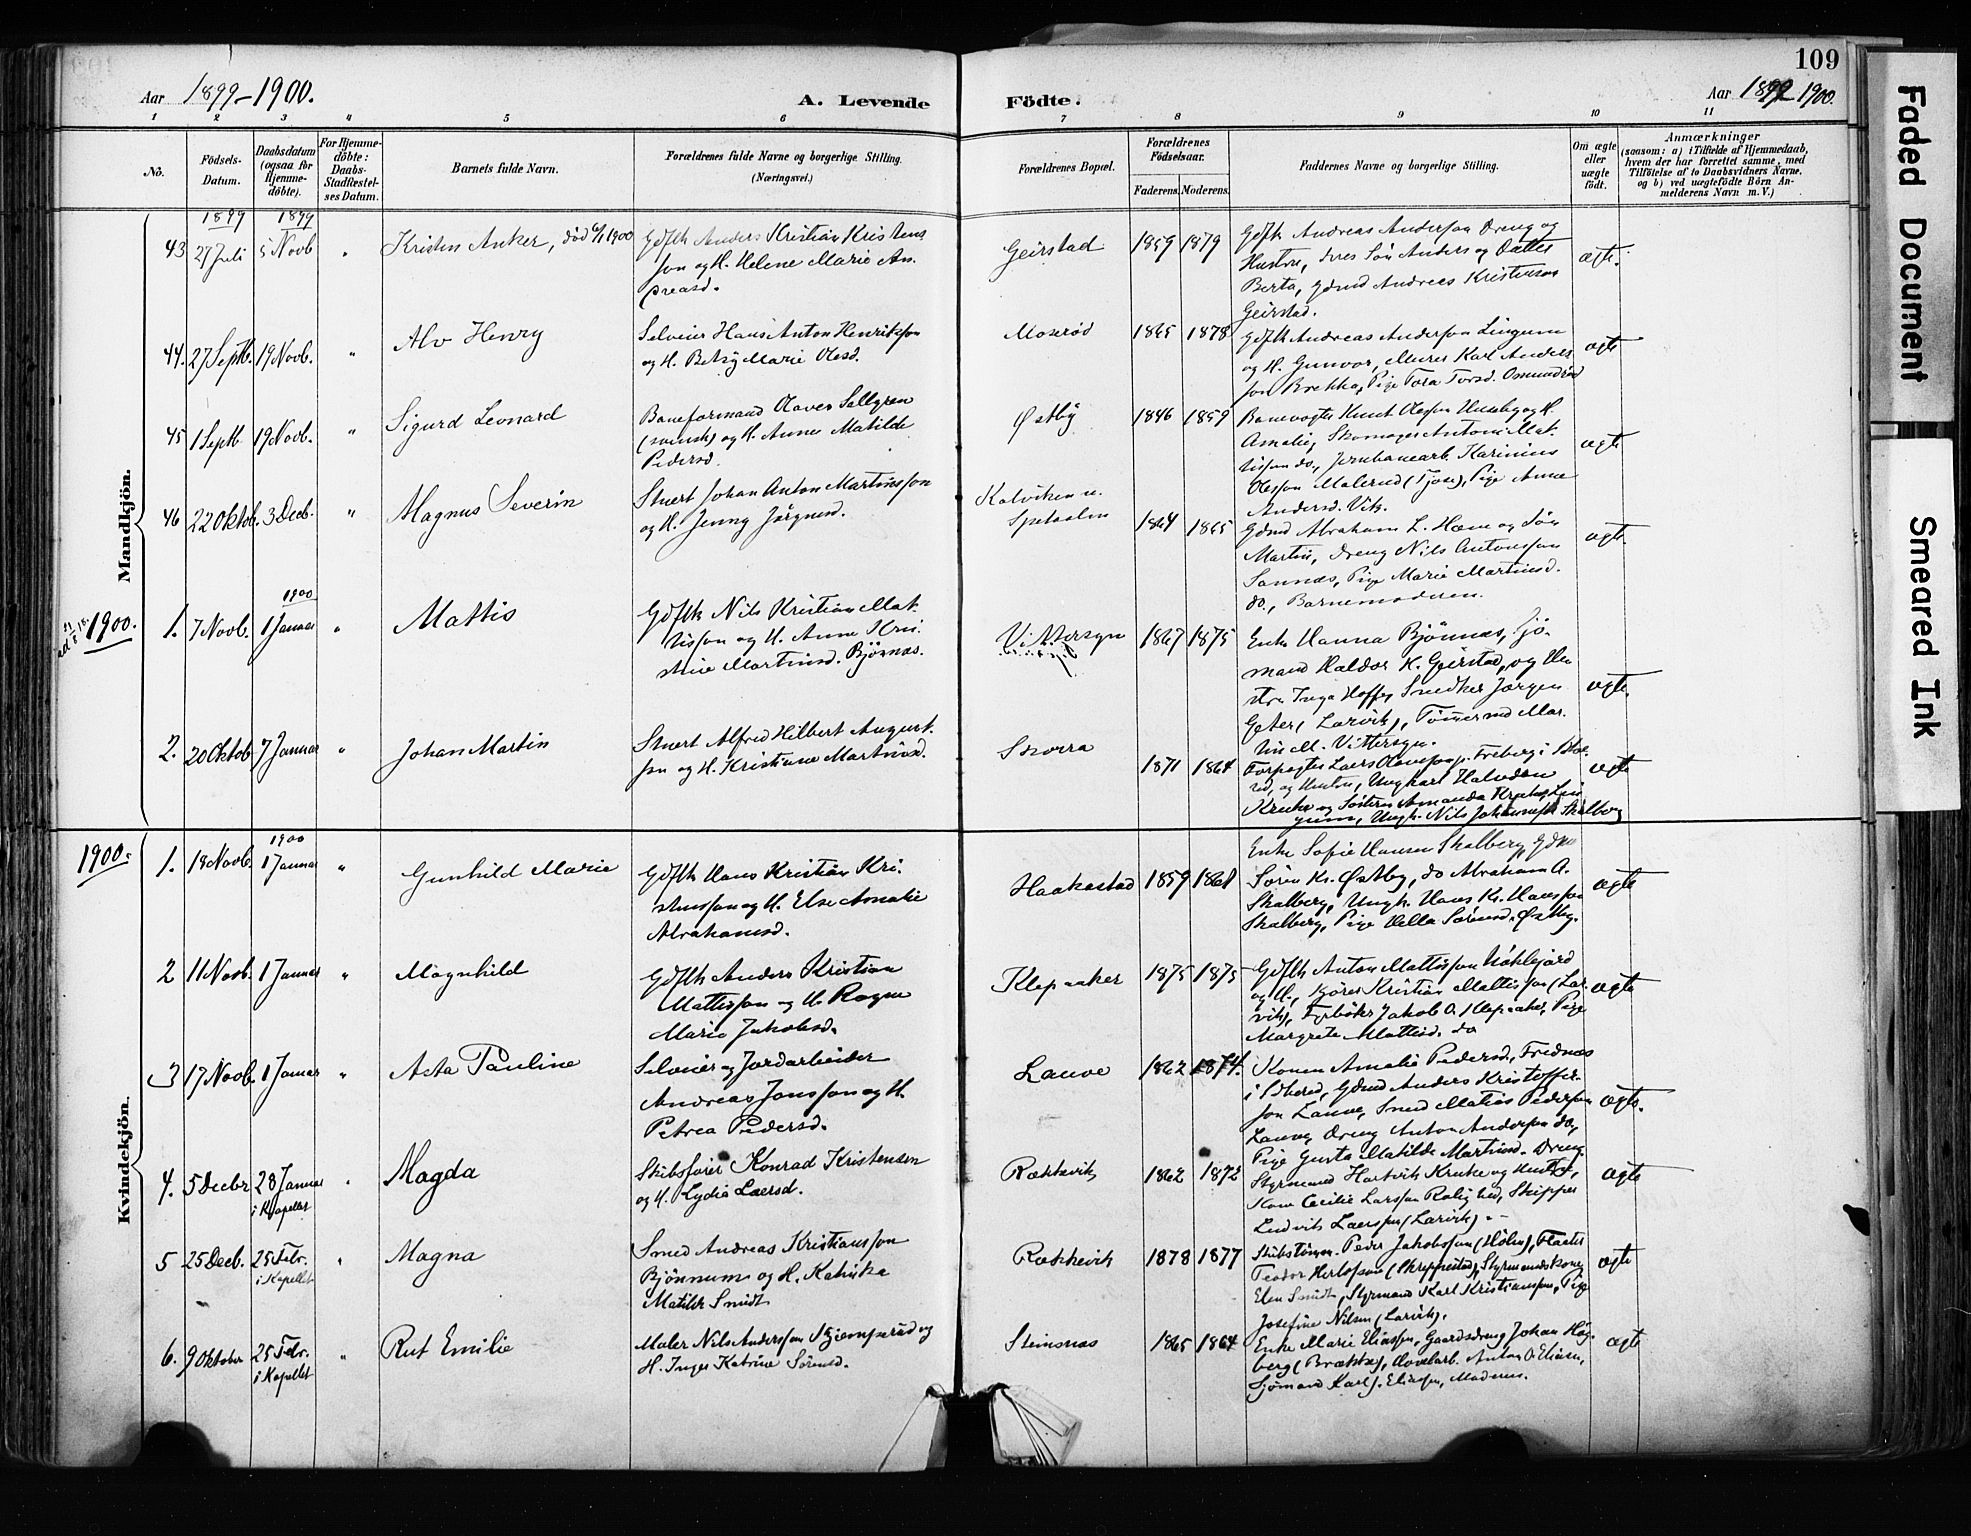 109
Aar 1899-1900.
A. Levende
Födte.
Aar 1899 1900.
1 2 3 4 5 6 7 8 9 10 11
No.
Födsels-
Datum.
Daabsdatum
(ogsaa for
Hjemme-
döbte).
For Hjemme-
döbte:
Daabs-
Stadfæstel-
ses Datum.
Barnets fulde Navn.
Forældrenes fulde Navne og borgerlige Stilling.
(Næringsvei.)
Forældrenes Bopæl.
Forældrenes
Födselsaar.
Faderens. Moderens.
Faddernes Navne og borgerlige Stilling.
Om ægte
eller
uægte
födt.
Anmærkninger
(saasom: a) i Tilfælde af Hjemmedaab,
hvem der har forrettet samme, med
Tilföielse af to Daabsvidners Navne,
og b) ved uægtefödte Börn An-
melderens Navn m. V.)
Mandkjön.
1899 1899
43 27 Juli 5 Novb " Kristen Anker, död 6/1 1900
Gdfth Anders Kristian Kristens
søn og H. Helene Marie An-
dreasd.
Geirstad 1859 1879
Gdfth Andreas Anderssøn Dreng og
Hustru, deres Søn Anders og Datter
Berta, Gdmd Andreas Kristensøn
Geirstad.
ægte.
44. 27 Septb. 19 Novb. " Alv Henry
Selveier Hans Anton Henrikssøn
og H. Betsy Marie Olesd.
Moserød 1865 1878
Gdfth Andreas Anderssøn Lingum
og H. Gunvor, Murer Karl Anders
søn Brekka, Pige Tora Torsd. Omundrød
ægte
45 1 Septb. 19 Novb. " Sigurd Leonard
Baneformand Olaves Sallgren
(svensk) og H. Anne Matilde
Pedersd.
Østby 1846 1859
Banevogter Knut Olessøn Huseby og H.
Amalie, Skomager Anton Mat-
tissøn do., Jernbanearb. Karinius
Olessøn Malerud (Tjøse), Pige Anne
Andersd. Vik.
ægte
46 22 Oktob. 3 Decb. " Magnus Severin
Stuert Johan Anton Martinssøn
og H. Jenny Jørgensd.
Kalviken u.
Spetaalen 1864 1865
Gdmd Abraham L. Hæm og Søn
Martin, Dreng Nils Antonssøn
Sannes, Pige Marie Martinsd.
do., Barnemoderen.
ægte.
1900. 1900
1. 7 Novb. 1 Januar " Mattis
Gdfth Nils Kristian Mat-
tissøn og H. Anne Kri-
stine Martinsd. Bjønnes.
Vittersøn 1867 1875
Enke Hanna Bjønnes, Sjø-
mand Haldor K. Geirstad, og Hu-
stru Inga Hoff, Snedker Jørgen
(Larvik), Tømmermd Mar-
tin M. Vittersøn.
ægte.
2. 20 Oktob 7 Januar " Johan Martin
Stuert Alfred Hilbert August-
søn og H. Kristiane Martinsd.
Skorra 1871 1864
Forpagter Laers Olavessøn Freberg i
og Hustru, Ungkarl Halvdan
Kruke og Søsteren Amanda Kruke, Lin
gum, Ungk. Nils Johannessøn Skalberg
ægte
Kvindekjön.
1900. 1900
1. 18 Novb. 1 Januar " Gunhild Marie
Gdfth Hans Kristian Kri-
stenssøn og H. Else Amalie
Abrahamsd.
Haakestad 1859 1861
Enke Sofie Hansen Skalberg, Gdmd
Søren Kr. Østby, do Abraham A.
Skalberg, Ungk. Hans Kr. Hanssøn
Skalberg, Pige Hella Sørensd. Østby.
ægte
2 11 Novb. 1 Januar " Magnhild
Gdfth Anders Kristian
Mattissøn og H. Ragna
Marie Jakobsd.
Klepaaker 1875 1875
Gdfth Anton Mattissøn
og H., Kjører Kristian Mattissøn (Lar-
vik), Fyrbøter Jakob O. Klepaaker, Pige
Margrete Mattisd. do
ægte
3 17 Novb. 1 Januar " Asta Pauline
Selveier og Jordarbeider
Andreas Jonssøn og H.
Petrea Pedersd.
Lauve 1862 1874.
Konen Amalie Pedersd., Frednes
i Eidanger, Gdmd Anders Kristoffer-
søn Lauve, Smed Matias Pederssøn
Lauve, Dreng Anton Anderssøn do,
Pige Gusta Matilde Martinsd. Dreng
ægte.
4. 5 Decbr 28 Januar i Kapellet Magda
Skibsfører Konrad Kristensen
og H. Lydia Laersd.
Rækkevik 1862 1872
Styrmand Hartvik Kruke og Hustru,
Kone Cecilie Larssøn Rolighed, Skipper
Ludvik Laerssøn (Larvik).
ægte
5 25 Decb. 25 Febr. i Kapellet " Magna
Smed Andreas Kristianssøn
Bjønnum og H. Katinka
Matilde Smidt
Rækkevik 1878 1877
Skibstømm. Peder Jakobssøn (Holm),
Teodor Herlofson (Skreppestad), Styrmandskone
Elen Smidt, Styrmand Karl Kristianssøn, Pige
Josefine Nilsen (Larvik).
ægte
6. 9 Oktober 25 Febr. i Kapellet " Rut Emilie
Maler Nils Anderssøn Kjempørud og
H. Inger Katrine Sørensd.
Steinsnes 1865 1864
Enke Marie Eliassen, Gaardsdreng Johan Høg-
berg (Brække), Høvlearb. Anton O. Eliassen,
Sjømand Karl J. Eliassen, Moderen.
ægte
Faded Document
Smeared Ink